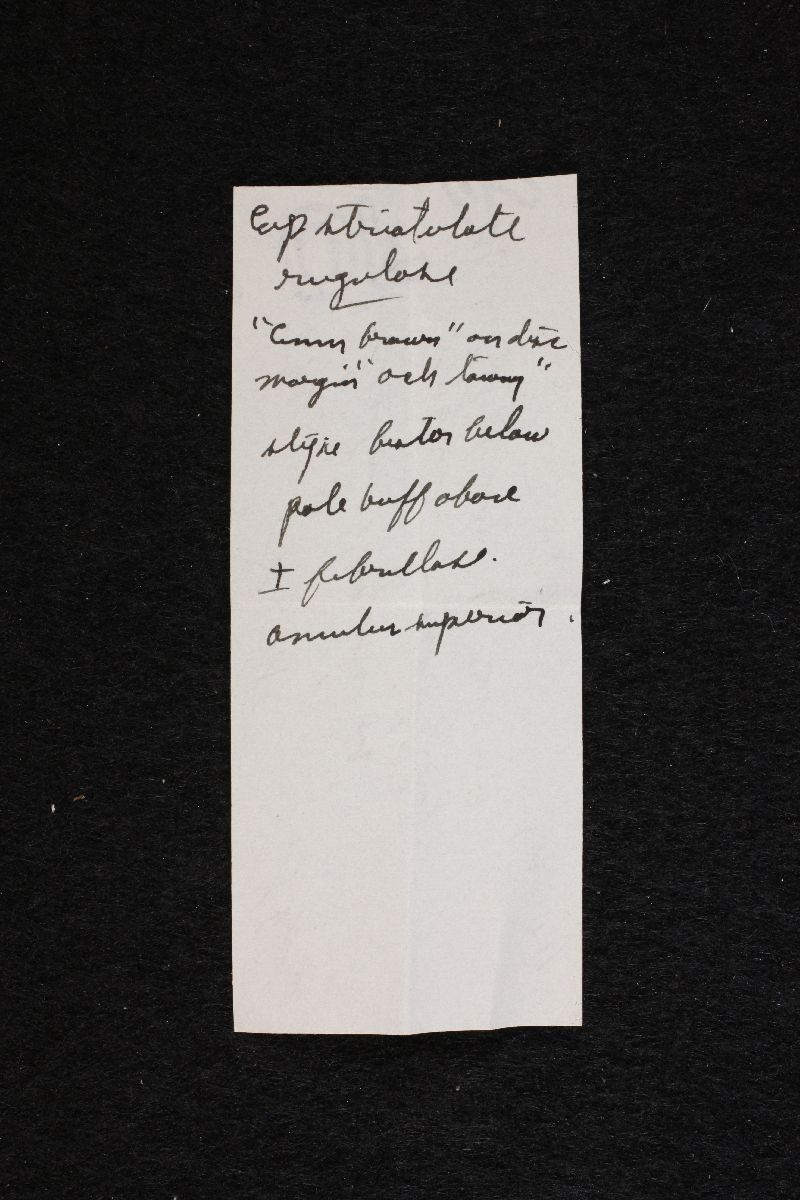 Cap striatulate
rugulose
"Cinn brown" on disc
margin "och tawny"
stipe bister below
pale buff above
± fibrillose.
annulus superior.